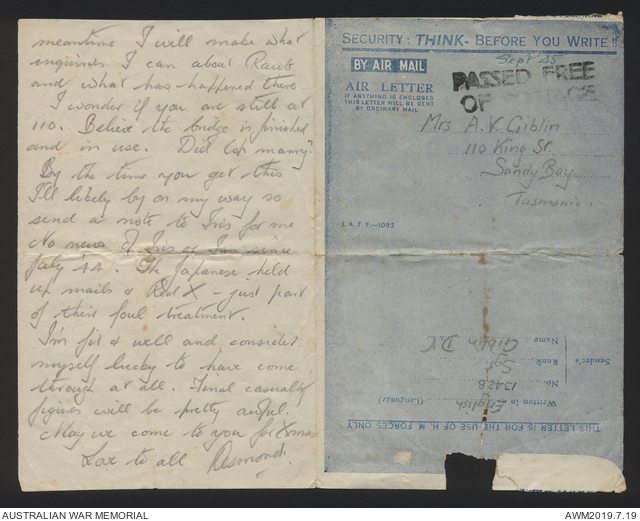 meantime I will make what
inquiries I can about Raub
and what has happened there.
I wonder if you are still at
110. Believe the bridge is finished
and in use. Did Cap marry?
By the time you get this
I'll likely be on my way so
send a note to Iris for me
No news of Iris or Ian since
July '44. The Japanese held
up mails & Red X - just part
of their foul treatment.
I'm fit & well and consider
myself lucky to have come
through at all. Final casualty
figures will be pretty awful.
May we come to you for Xmas
Love to all Desmond.
SECURITY: THINK - BEFORE YOU WRITE!!
Sept 45
BY AIR MAIL
PASSED FREE
OF
AIR LETTER
IF ANYTHING IS ENCLOSED
THIS LETTER WILL BE SENT
BY ORDINARY MAIL
Mrs A. V. Giblin
110 King St.
Sandy Bay
Tasmania.
I.A.F.F.-1093
THIS LETTER IS FOR THE USE OF H. M. FORCES ONLY
Written in English (Language)
No. 13428
Sender's Rank Sgt
Name Giblin D. V.
AUSTRALIAN WAR MEMORIAL
AWM2019.7.19